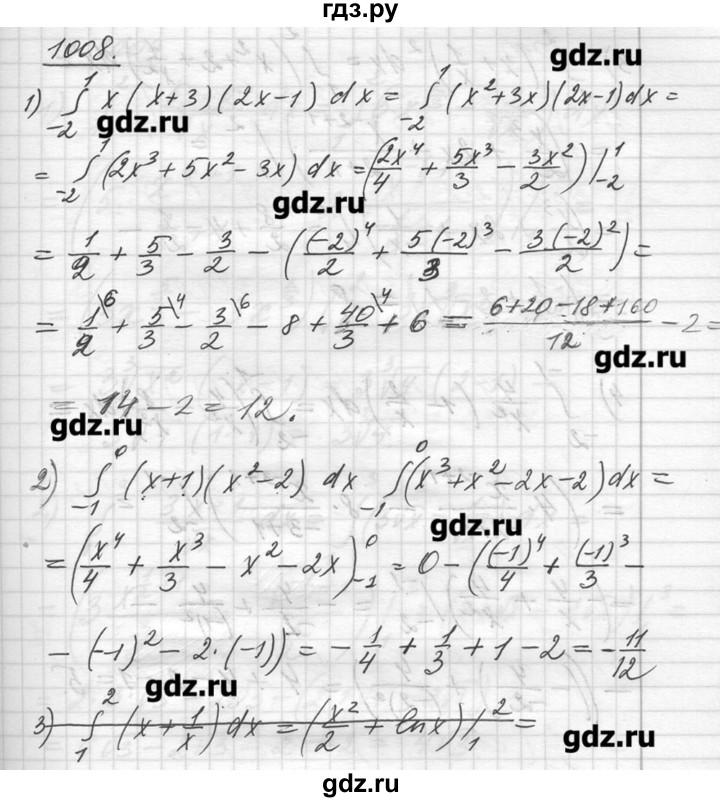 гдз.ру
1008. gdz.ru
1) ∫₋₂¹ x(x+3)(2x-1) dx = ∫₋₂¹ (x²+3x)(2x-1)dx =
gdz.ru
= ∫₋₂¹ (2x³+5x²-3x) dx = (2x⁴/4 + 5x³/3 - 3x²/2)|₋₂¹
gdz.ru
= 1/2 + 5/3 - 3/2 - ((-2)⁴/2 + 5(-2)³/3 - 3(-2)²/2) =
= 1\⁶/2 + 5\⁴/3 - 3\⁶/2 - 8 + 40\⁴/3 + 6 = (6+20-18+160)/12 - 2 =
gdz.ru
= 14 - 2 = 12.
gdz.ru
2) ∫₋₁⁰ (x+1)(x²-2) dx ∫₋₁⁰ (x³+x²-2x-2)dx =
gdz.ru
= (x⁴/4 + x³/3 - x² - 2x)₋₁⁰ = 0 - ((-1)⁴/4 + (-1)³/3 -
- (-1)² - 2·(-1)) = -1/4 + 1/3 + 1 - 2 = -11/12
gdz.ru
3) ∫₁² (x + 1/x) dx = (x²/2 + ln x)|₁² =
gdz.ru
gdz.ru